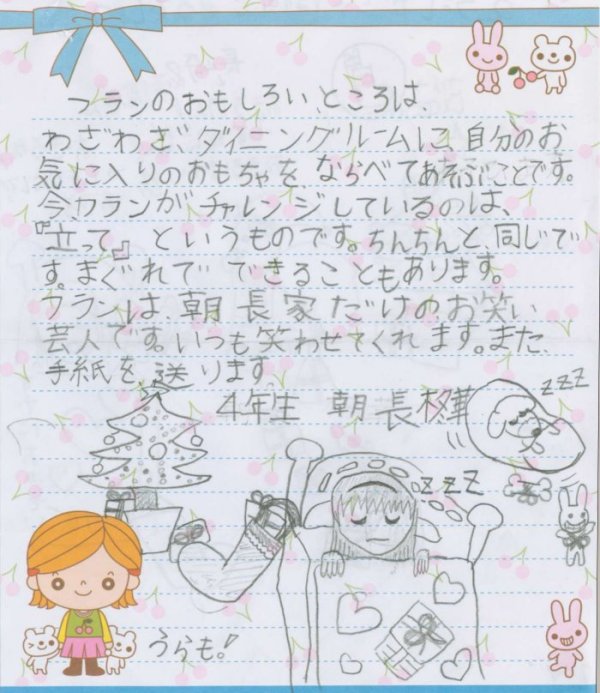 フランのおもしろい、ところは、
わざわざ、ダイニングルームに、自分のお
気に入りのおもちゃを、ならべてあそぶことです。
今、フランがチャレンジしているのは、
『立って』というものです。ちんちんと、同じで
す。まぐれでできることもあります。
フランは朝長家だけのお笑い
芸人です。いつも笑わせてくれます。また、
手紙を送ります。
4年生 朝長
zzz
zzz
うらも!